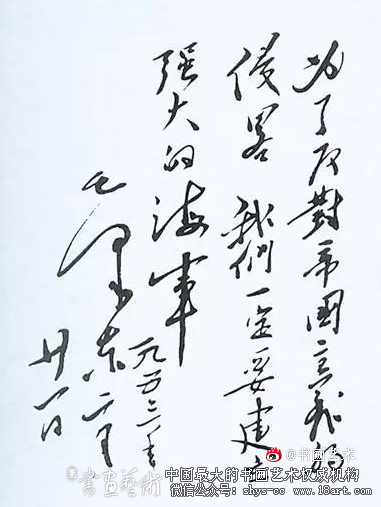 为了反對帝國主義的
侵畧 我們一定要建立
强大的海軍
毛澤东
一九五三年
二月
廿一日
@书画艺术
書画藝術
中国最大的书画艺术权威机构
微信公众号：shys-cc www.18art.com